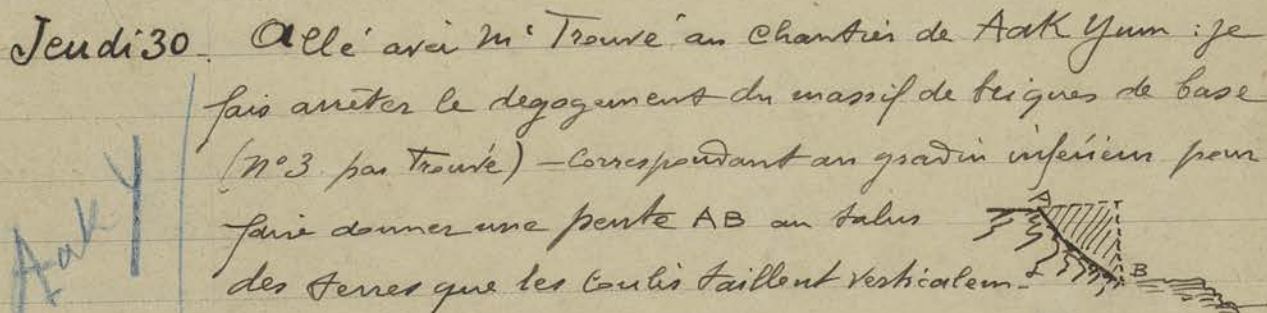 Jeudi 30. Allé avec Mr Trouvé au chantier de Aak Yum : je
fais arrêter le degagement du massif de briques de base
(n°3 par Trouvé) - Correspondant au gradin inférieur pour
faire donner une pente AB au talus
des terres que les coulis taillent verticalem-
Aak Y
A
B